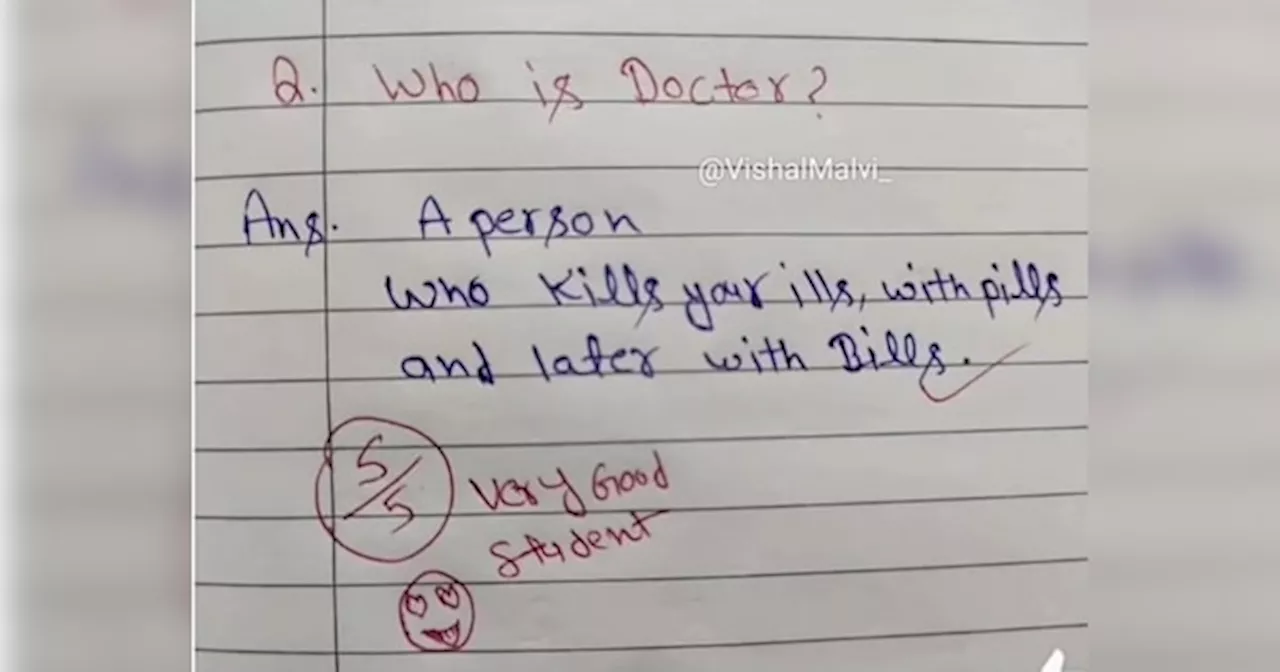 Q. Who is Doctor?
@VishalMalvi_
Ans. A person
who kills your ills, with pills
and later with Bills.
5/5 Very Good
student